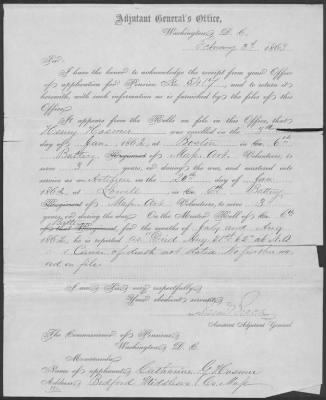 Adjutant General's Office,
Washington, D. C.
February 3d 1863
Sir:
I have the honor to acknowledge the receipt from your Office
of application for Pension No. and to return it
herewith, with such information as is furnished by the files of this
Office.
It appears from the Rolls on file in this Office, that
Henry Hosmer was enrolled on the
day of Jan. 1862, at Boston in Co. 6th
Battery Regiment of Mass Art. Volunteers, to
serve 3 years, or during the war, and mustered
into service as Artificer on the 20th day of Jan.
1862, at Lowell in Co. 6th Battery,
Regiment of Mass Art. Volunteers, to serve 3
years, or during the war. On the Muster Roll of Co. 6th
Battery of that Regiment, for the months of July and Aug
1862, he is reported Died Aug
Cause of death not stated No further
on file.
I am Sir very respectfully,
Your obedient servant,
Assistant Adjutant General
The Commissioner of Pensions
Washington D. C.
Memoranda:
Name of applicant Catharine G. Hosmer
Address, Bedford Middlesex Co. Mass